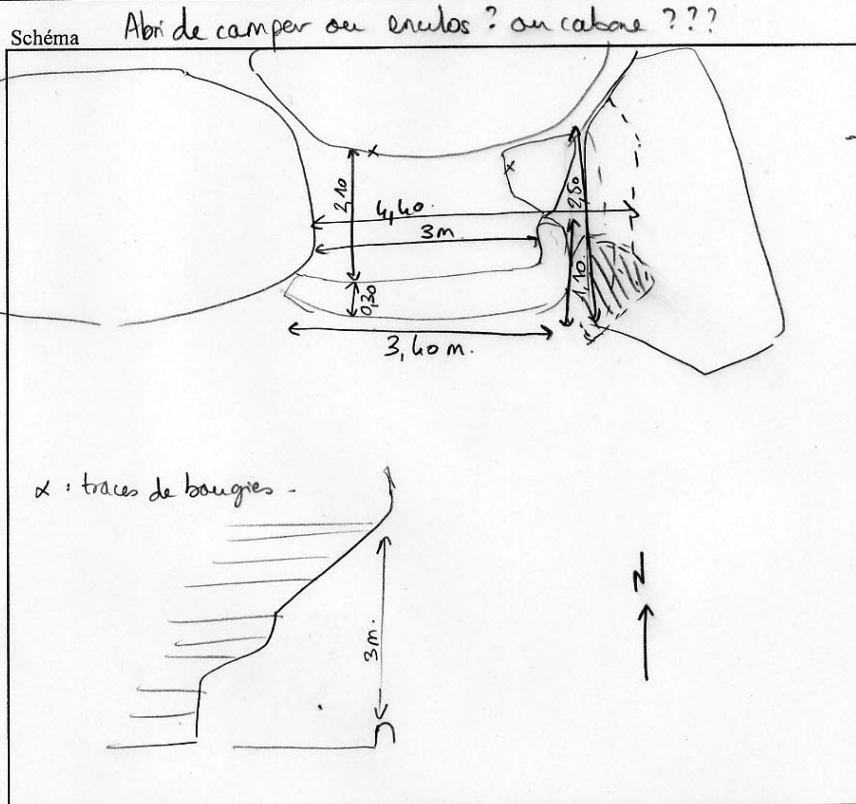 Schéma
Abri de camper ou enclos ? ou cabane ???
2,10
4,40
3m
2,50
1,10
0,30
3,40 m.
x : traces de bougies -
3m.
N